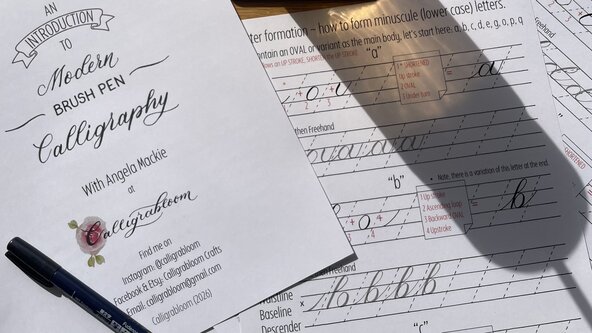 AN
INTRODUCTION
TO
Modern
BRUSH PEN
Calligraphy
With Angela Mackie
at
Calligrabloom
Find me on
Instagram: @calligrabloom
Facebook & Etsy: Calligrabloom Crafts
Email: calligrabloom@gmail.com
Calligrabloom (2026)
ter formation – how to form minuscule (lower case) letters.
ontain an OVAL or variant as the main body, let's start here: a, b, c, d, e, g, o, p, q
"a"
* SHORTENED
Up stroke
2 OVAL
3 Under turn
= a
then Freehand
a a a a
"b"
• Note, there is a variation of this letter at the end
1 Up stroke
2 Ascending loop
3 Backward OVAL
4 Upstroke
= b
Freehand
x b b b b
Waistline
Baseline
Descender
"c"